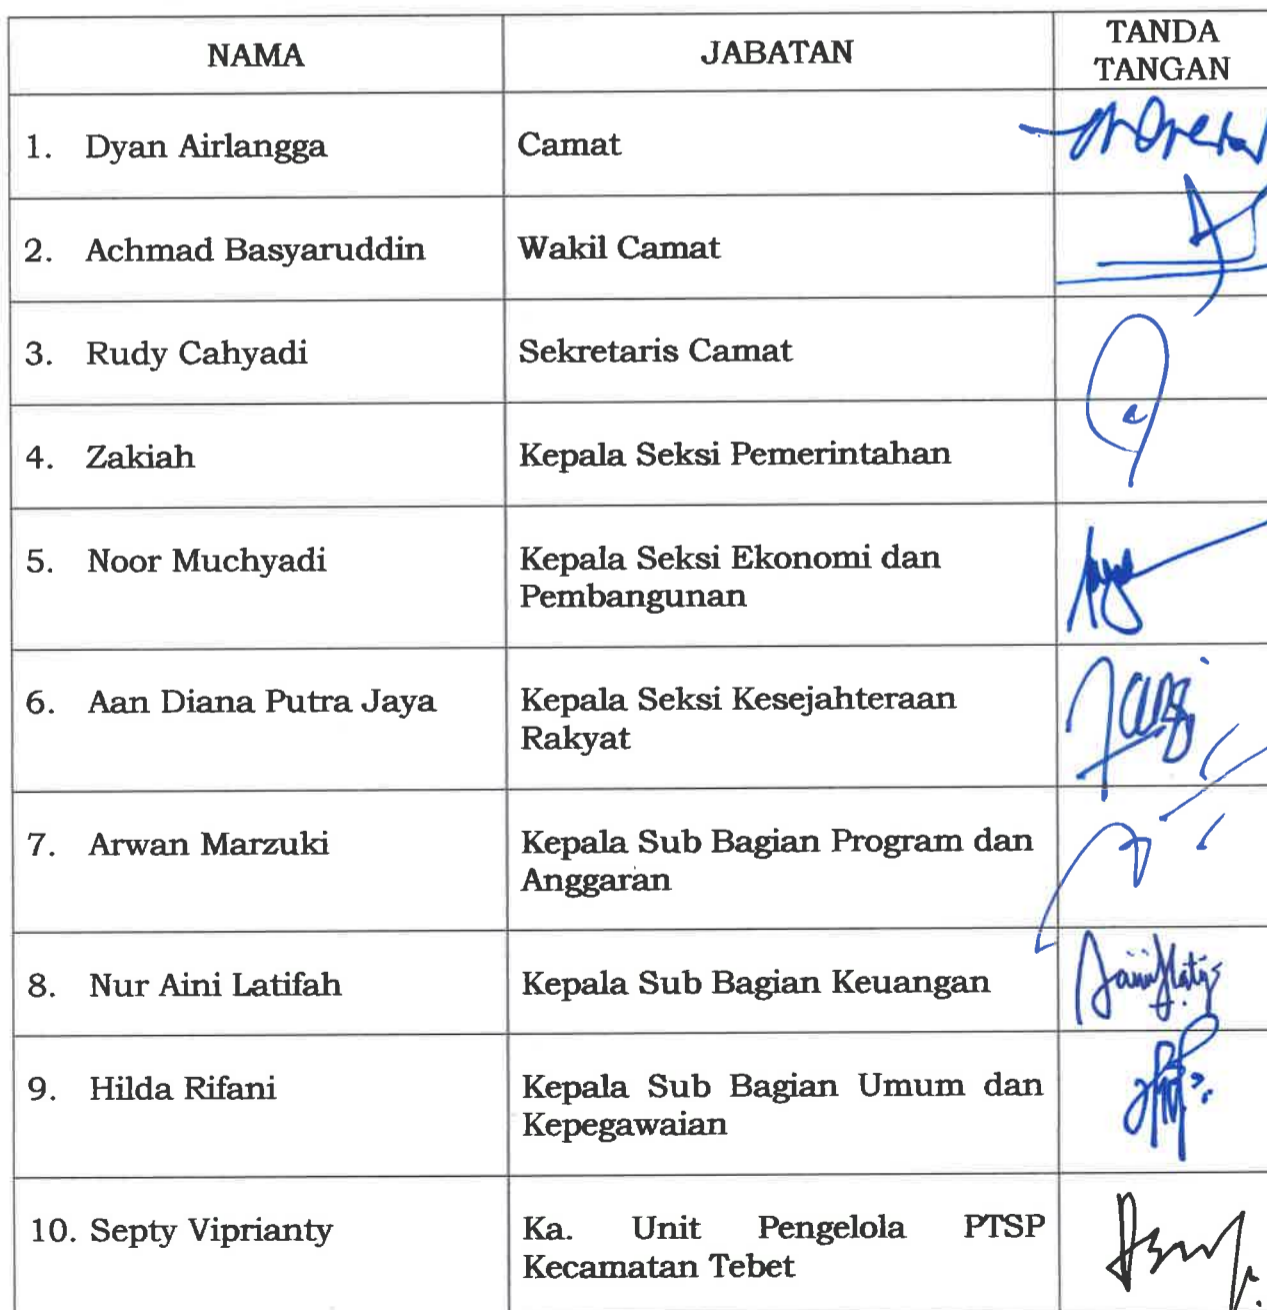 NAMA JABATAN TANDA
TANGAN
1. Dyan Airlangga Camat
2. Achmad Basyaruddin Wakil Camat
3. Rudy Cahyadi Sekretaris Camat
4. Zakiah Kepala Seksi Pemerintahan
5. Noor Muchyadi Kepala Seksi Ekonomi dan
Pembangunan
6. Aan Diana Putra Jaya Kepala Seksi Kesejahteraan
Rakyat
7. Arwan Marzuki Kepala Sub Bagian Program dan
Anggaran
8. Nur Aini Latifah Kepala Sub Bagian Keuangan
9. Hilda Rifani Kepala Sub Bagian Umum dan
Kepegawaian
10. Septy Viprianty Ka. Unit Pengelola PTSP
Kecamatan Tebet